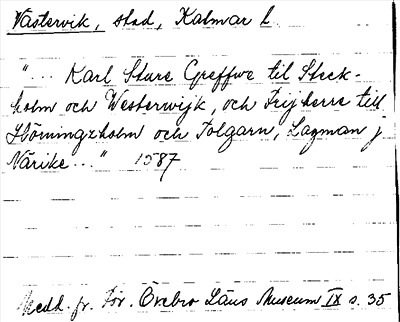 Västervik, stad, Kalmar l.
"... Karl Sture Greffwe til Steck-
holm och Westerwijk, och Frijherre till
Hörningzholm och Tolgarn, Lagman j
Närike..." 1587
Medd. fr. För. Örebro Läns Museum IX s. 35